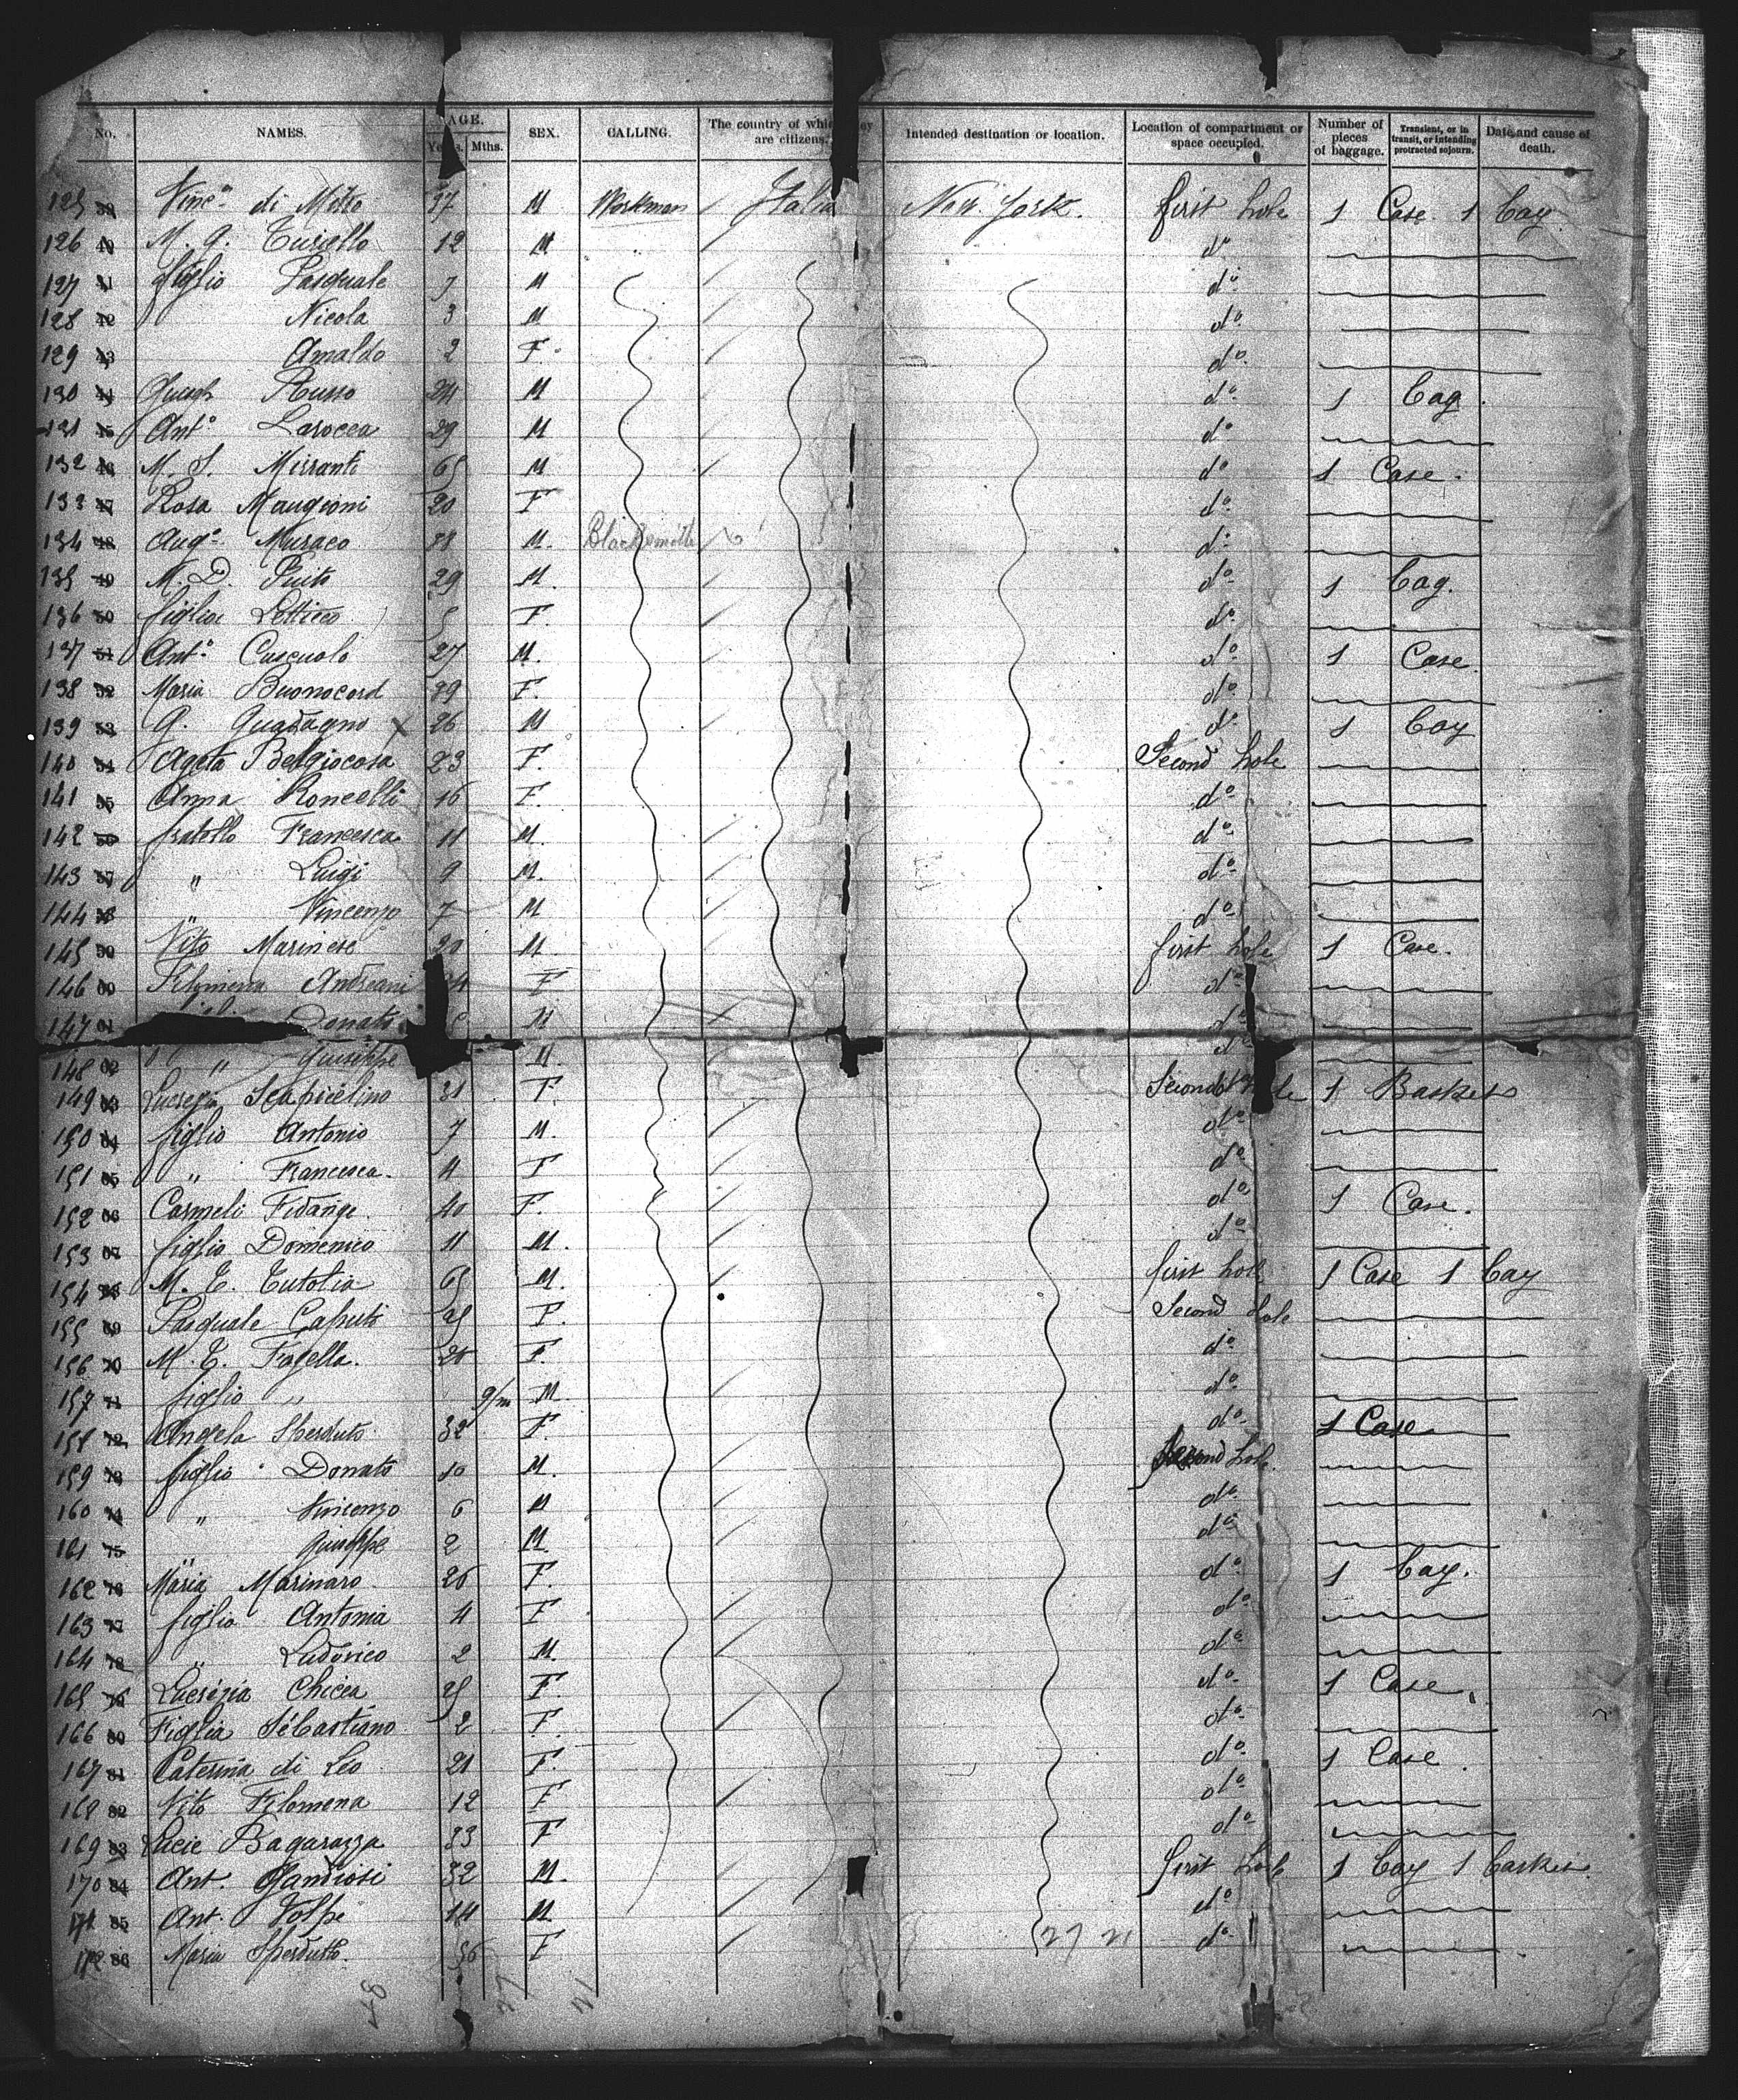 No. NAMES. AGE. Mths. SEX. CALLING. The country of are citizens. Intended destination or location. Location of compartment or space occupied. Number of pieces of baggage. Transient, or in transit, or intending protracted sojourn. Date and cause of death.
125 Vinc.º di Mitro 37 M Workman Italia New York. first hole 1 Case 1 bag
126 M. G. Turiello 12 M dº
127 figlio Pasquale 7 M dº
128 Nicola 3 M dº
129 Amaldo 2 F dº
130 Russo 24 M dº 1 bag.
131 Antº Larocca 29 M dº
132 M. S. Mirranti 65 M dº 1 Case.
133 Rosa Maugioni 20 F dº
134 Augº Muraco 38 M. Blacksmith dº
135 M. D. Guito 29 M. dº 1 bag.
136 figlia 5 F. dº
137 Antº Cuscuolo 27 M. dº 1 Case.
138 Maria Buonocord 39 F. dº
139 G. Guadagno 26 M dº 1 bag
140 Agata Belgiocosa 23 F. Second hole
141 Anna Roncelli 16 F. dº
142 fratello Francesca 11 M. dº
143 " Luigi 9 M. dº
144 " Vincenzo 7 M dº
145 Vito Marinese 20 M. first hole 1 Case.
146 Filomena Andreani F dº
147 Donato M dº
148 " Giuseppe M dº
149 Scapicelino 31 F. Second 1 Basket
150 figlio Antonio 7 M. dº
151 " Francesca. 4 F dº
152 Carmeli Fidange. 40 F. dº 1 Case.
153 figlio Domenico 11 M. dº
154 M. E. Tutolia 65 M. first hole 1 Case 1 bag
155 Pasquale Caputi 25 F. Second hole
156 M. E. Fagella. 26 F. dº
157 figlio " 9/m M. dº
158 Angela Sperduto 32 F. dº 1 Case
159 figlio Donato 10 M. Second hole.
160 " Vincenzo 6 M dº
161 " Giuseppe 2 M. dº
162 Maria Marinaro. 26 F. dº 1 bag.
163 figlia Antonia 4 F dº
164 " Ludovico 2 M. dº
165 Lucrezia Chicca 25 F. dº 1 Case.
166 Figlia Sebastiano 2 F. dº
167 Caterina di Leo 21 F. dº 1 Case.
168 Vito Filomena 12 F dº
169 Lucie Bagarazza 33 F dº
170 Ant. Gandiosi 32 M. first hole 1 bag 1 basket
171 Ant. Volpe 14 M. dº
172 Maria Sperdutto. 56 F dº